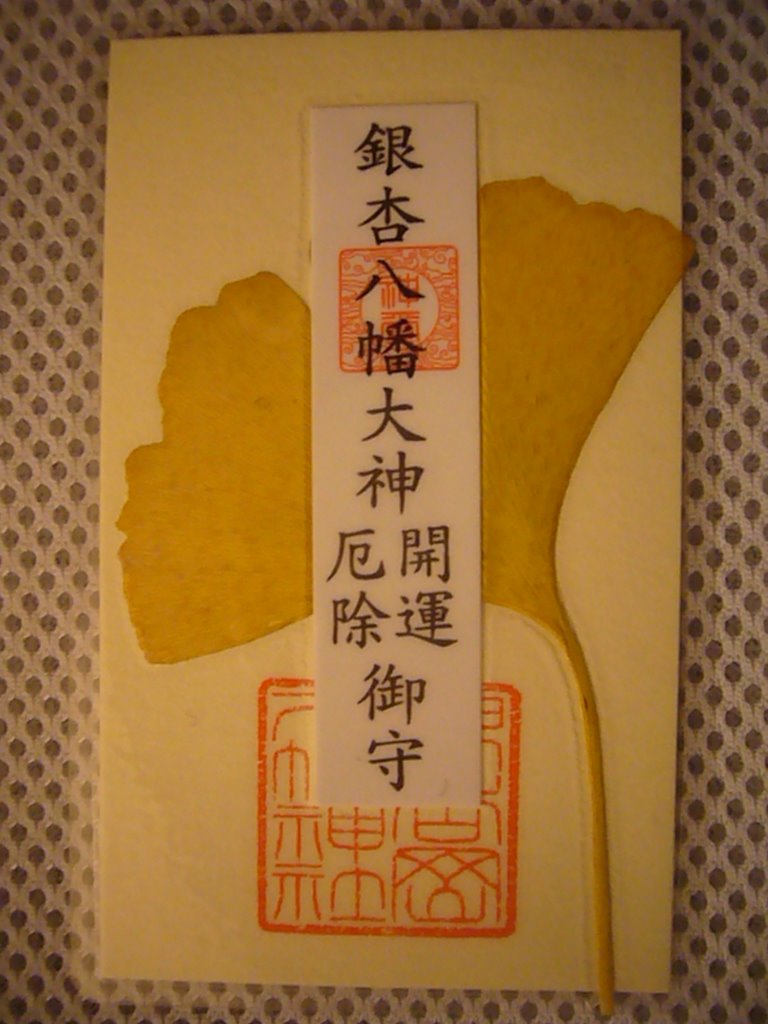 銀杏八幡大神
開運
厄除
御守